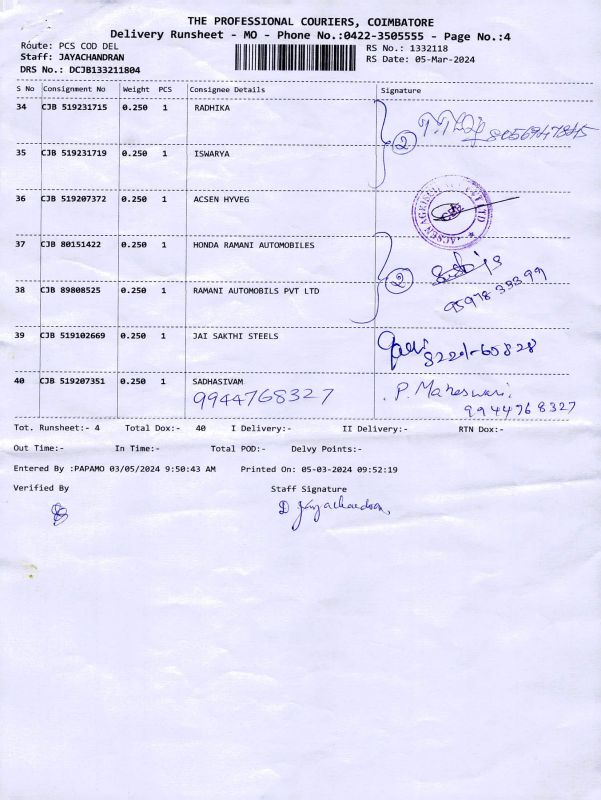 THE PROFESSIONAL COURIERS, COIMBATORE
Delivery Runsheet - MO - Phone No.:0422-3505555 - Page No.:4
Route: PCS COD DEL
RS No.: 1332118
Staff: JAYACHANDRAN
RS Date: 05-Mar-2024
DRS No.: DCJB133211804
S No Consignment No Weight PCS Consignee Details Signature
34 CJB 519231715 0.250 1 RADHIKA
2
35 CJB 519231719 0.250 1 ISWARYA
36 CJB 519207372 0.250 1 ACSEN HYVEG
37 CJB 80151422 0.250 1 HONDA RAMANI AUTOMOBILES
2
38 CJB 89808525 0.250 1 RAMANI AUTOMOBILS PVT LTD
39 CJB 519102669 0.250 1 JAI SAKTHI STEELS
8220-60828
40 CJB 519207351 0.250 1 SADHASIVAM
9944768327
P. Maheswari.
9944768327
Tot. Runsheet:- 4 Total Dox:- 40 I Delivery:- II Delivery:- RTN Dox:-
Out Time:- In Time:- Total POD:- Delvy Points:-
Entered By :PAPAMO 03/05/2024 9:50:43 AM Printed On: 05-03-2024 09:52:19
Verified By Staff Signature
D Jayachandran,